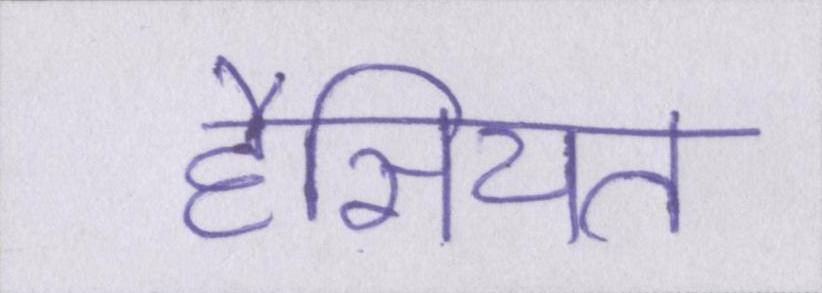 हैसियत